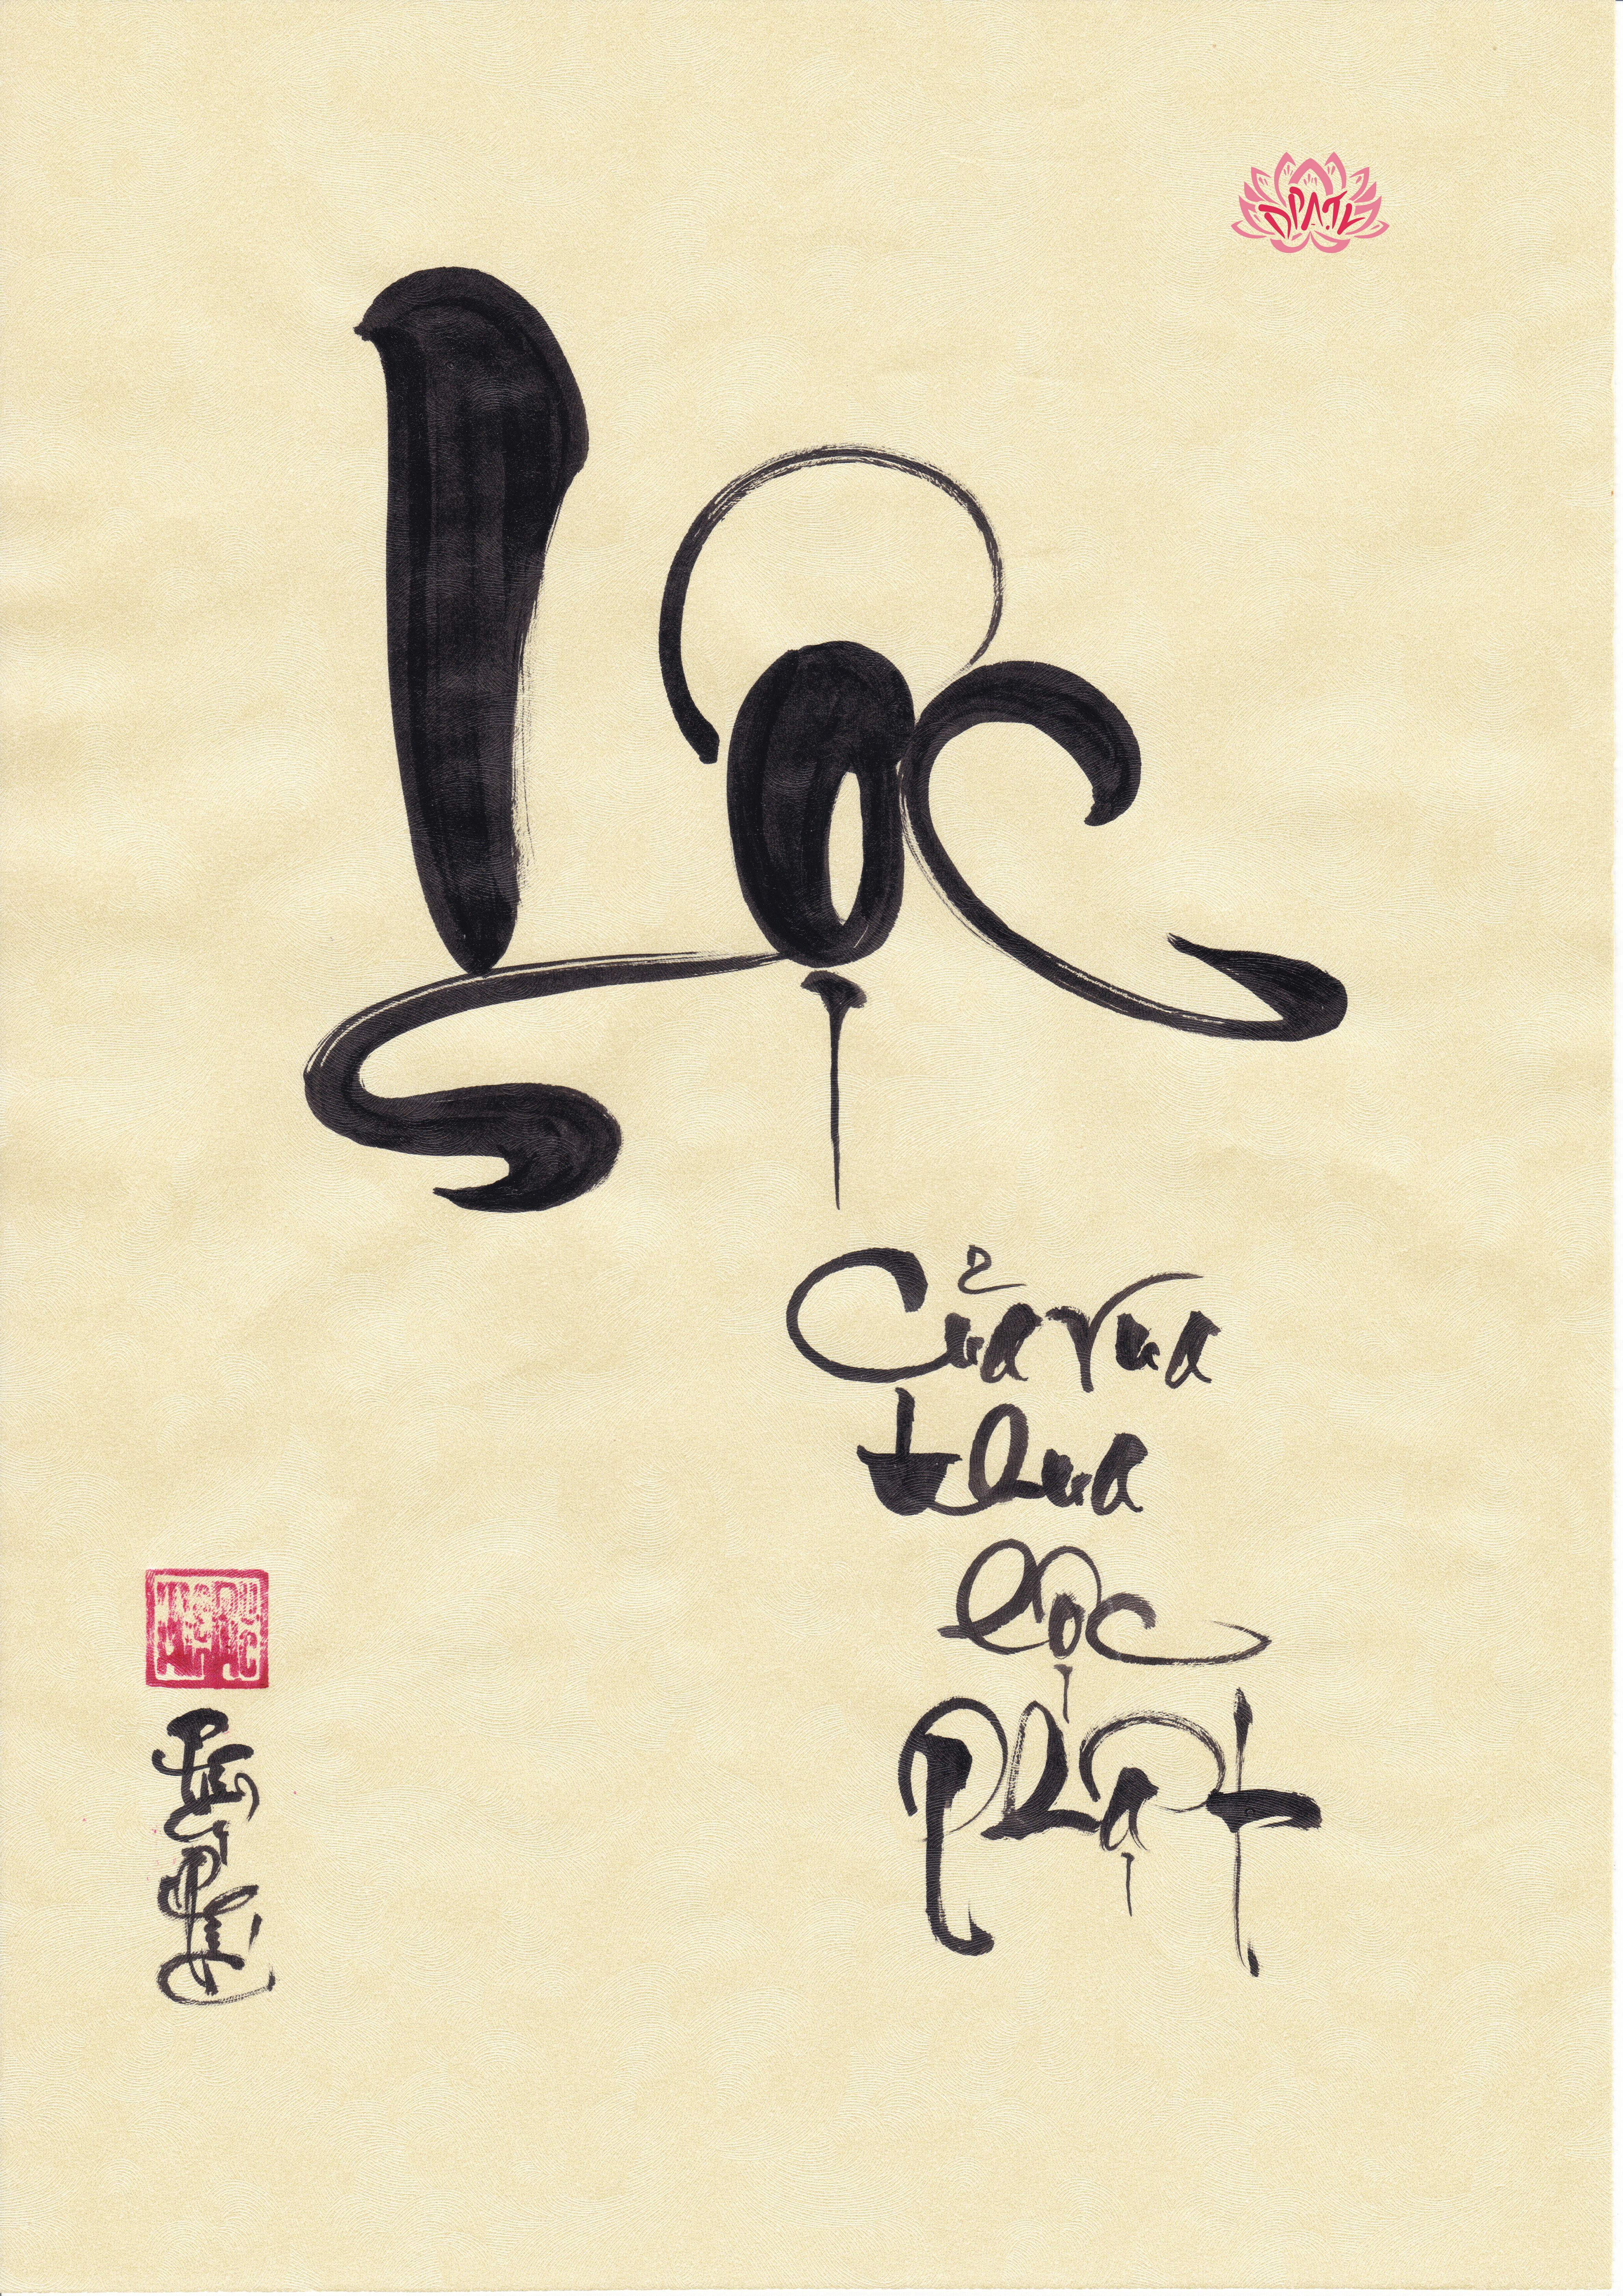 Lộc
Của vua
thua
lộc
Phật